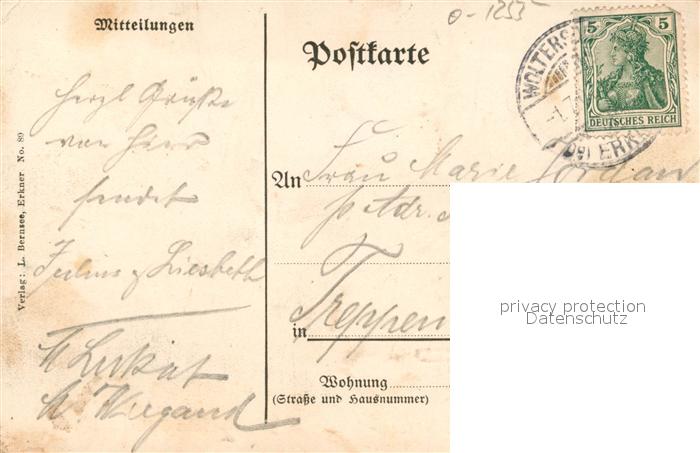 0-1255
Mitteilungen
Postkarte
5 5
DEUTSCHES REICH
WOLTERS
(bei ERK
Herzl Grüße
von hier
sendet
Julius u Liesbeth
Lukat
Wiegand
Verlag: L. Bernsee, Erkner No. 89
An Frau Marie Jordan
p Adr.
in Treppen
Wohnung
(Straße und Hausnummer)
privacy protection
Datenschutz